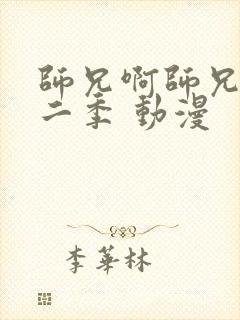 師兄啊師兄
二季 動漫
李華林